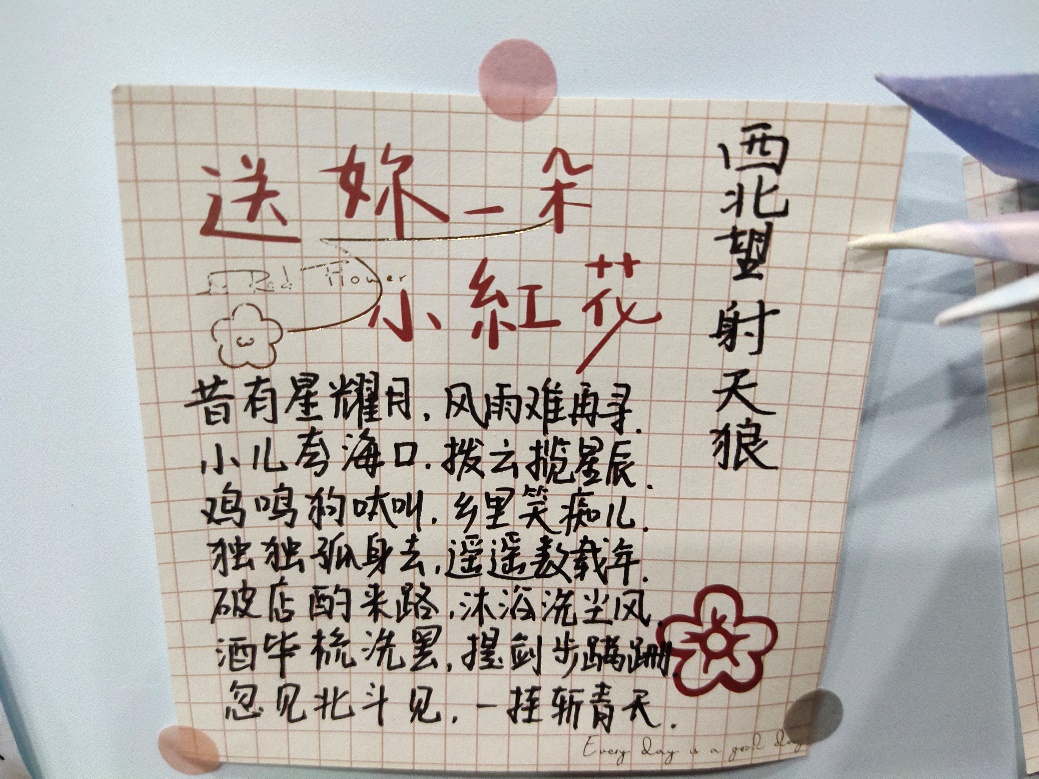 送妳一朵
Red Flower
小紅花
西北望射天狼
昔有星耀月,风雨难再寻.
小儿夸海口.拨云揽星辰.
鸡鸣狗吠叫,乡里笑痴儿.
独独孤身去,遥遥数载年.
破店酌来路,沐浴洗尘风.
酒毕梳洗罢,提剑步蹒跚.
忽见北斗见,一挂斩青天.
Every day is a good day